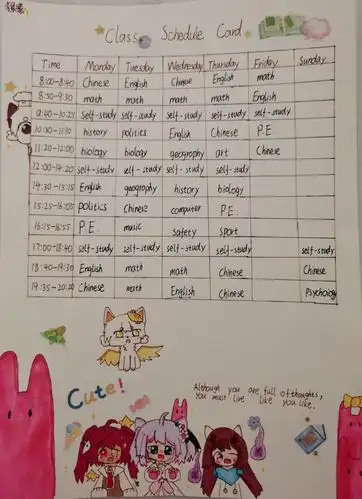 课表
Class Schedule Card.
Time Monday Tuesday Wednesday Thursday Friday Sunday
8:00-8:40 Chinese English Chinese English math
8:50-9:30 math math math math English
9:40-10:25 self-study self-study self-study self-study self-study
10:30-11:10 history politics English Chinese P.E
11:20-12:00 biology biology geography art Chinese
12:00-14:20 self-study self-study self-study self-study
14:30-15:15 English geography history biology
15:25-16:05 politics Chinese computer P.E.
16:15-16:55 P.E. music safety sport
17:00-18:40 self-study self-study self-study self-study self-study
18:40-19:30 English math math Chinese Chinese
19:35-20:20 Chinese math English Chinese Psychology
Cute!
Although you are full of thoughts,
You must live like you like.